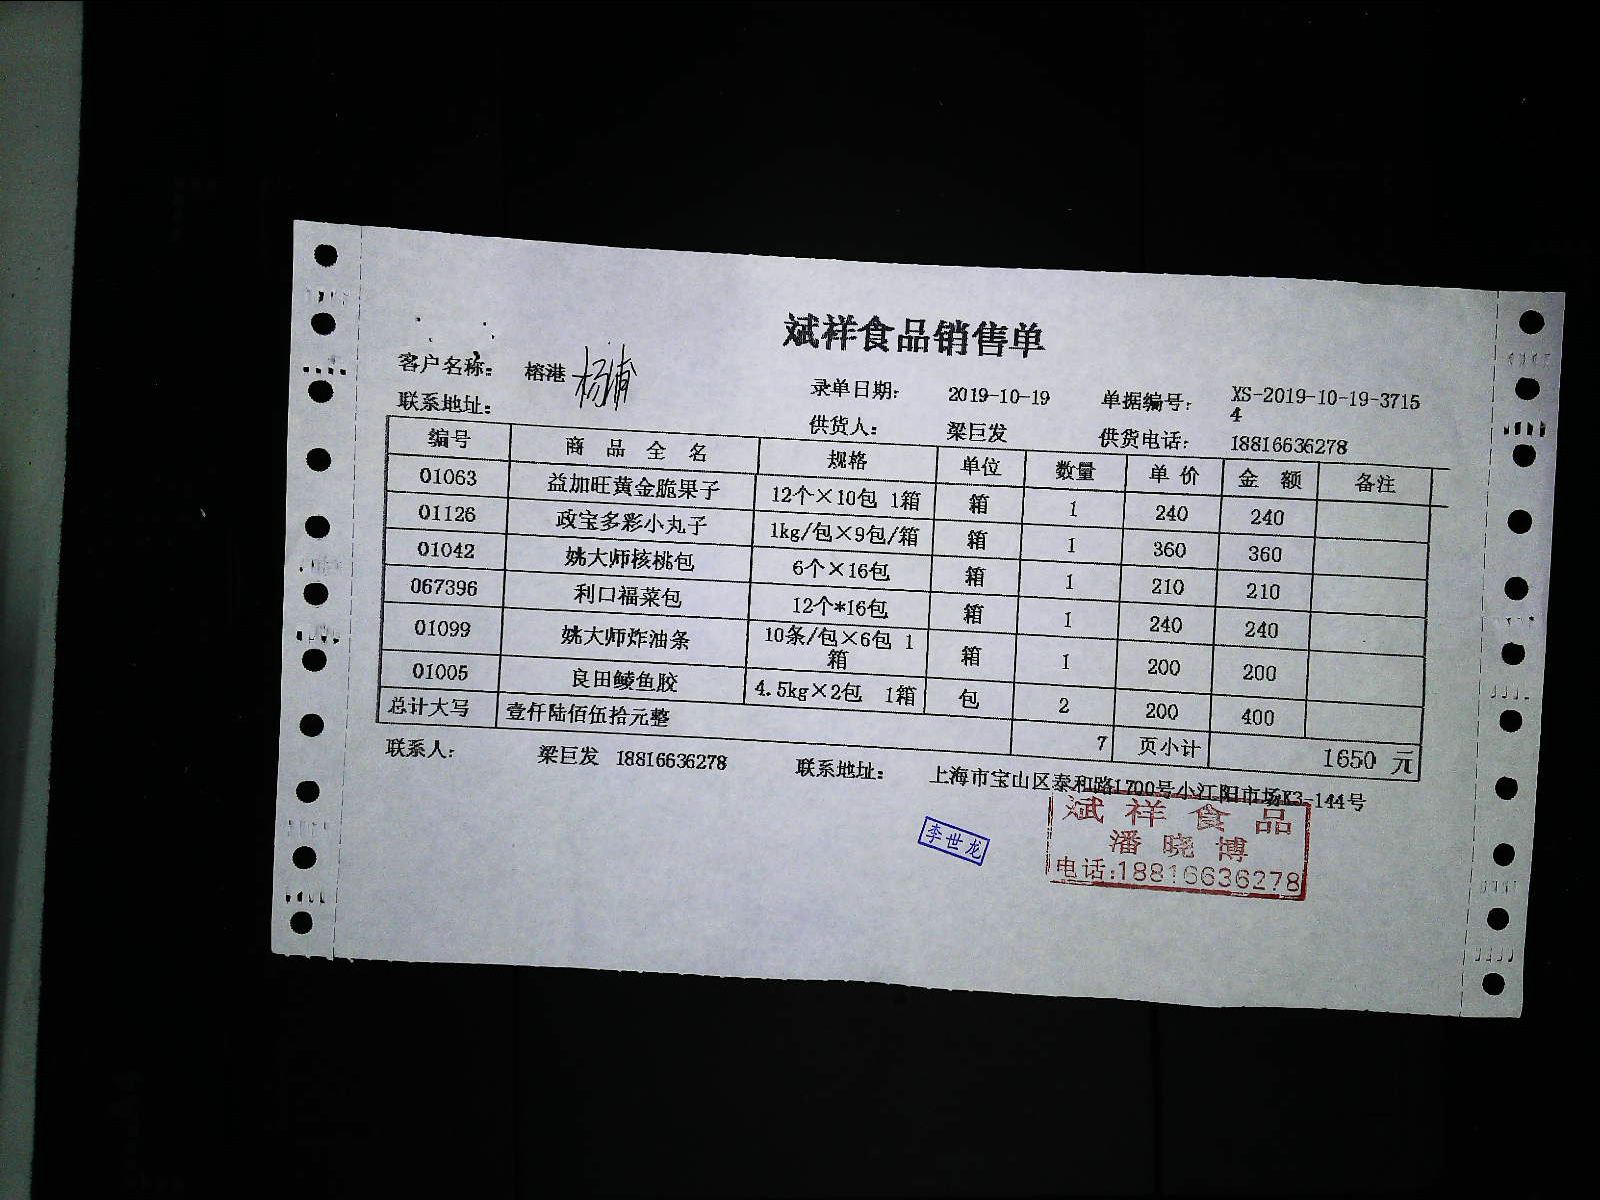 斌祥食品销售单
客户名称: 榕港 杨浦 录单日期: 2019-10-19 单据编号: XS-2019-10-19-3715
4
联系地址: 供货人: 梁巨发 供货电话: 18816636278
编号 商品全名 规格 单位 数量 单价 金额 备注
01063 益加旺黄金脆果子 12个×10包 1箱 箱 1 240 240
01126 政宝多彩小丸子 1kg/包×9包/箱 箱 1 360 360
01042 姚大师核桃包 6个×16包 箱 1 210 210
067396 利口福菜包 12个*16包 箱 1 240 240
01099 姚大师炸油条 10条/包×6包 1
箱 箱 1 200 200
01005 良田鲮鱼胶 4.5kg×2包 1箱 包 2 200 400
总计大写 壹仟陆佰伍拾元整 7 页小计 1650 元
联系人: 梁巨发 18816636278 联系地址: 上海市宝山区泰和路1700号小江阳市场K3-144号
李世龙
斌祥食品
潘晓博
电话:18816636278